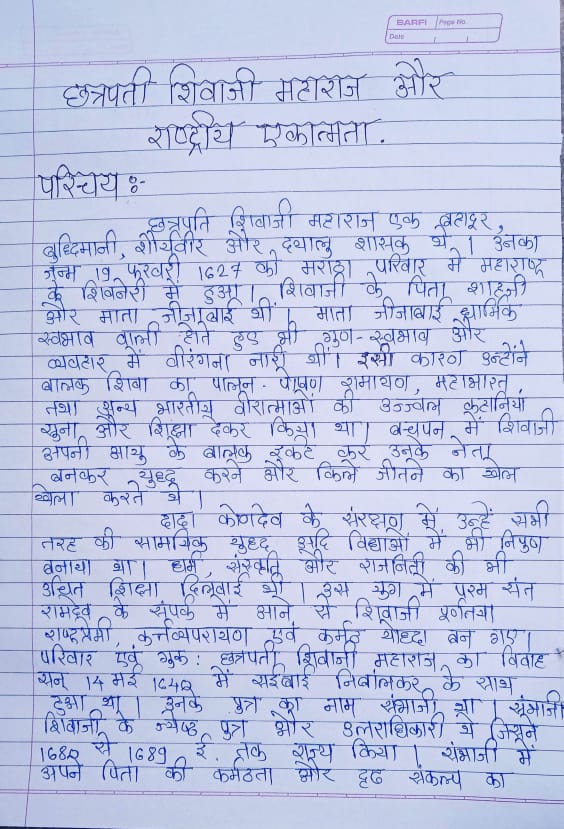 BARFI Page No.
Date
छत्रपती शिवाजी महाराज और
राष्ट्रीय एकात्मता.
परिचय :-
छत्रपति शिवाजी महाराज एक बहादूर,
बुध्दिमानी, शौर्यवीर और दयालु शासक थे । उनका
जन्म 19 फरवरी 1627 को मराठा परिवार में महाराष्ट्र
के शिवनेरी में हुआ। शिवाजी के पिता शाहजी
और माता जीजाबाई थीं। माता जीजाबाई धार्मिक
स्वभाव वाली होते हुए भी गुण-स्वभाव और
व्यवहार में वीरंगना नारी थीं। इसी कारण उन्होंने
बालक शिवा का पालन-पोषण रामायण, महाभारत
तथा अन्य भारतीय वीरात्माओं की उज्ज्वल कहानियां
सुना और शिक्षा देकर किया था। बचपन में शिवाजी
अपनी आयु के बालक इकटे कर उनके नेता
बनकर युध्द करने और किले जीतने का खेल
खेला करते थे ।
दादा कोणदेव के संरक्षण में उन्हें सभी
तरह की सामयिक युध्द आदि विद्याओं में भी निपुण
बनाया था। धर्म, संस्कृति और राजनिती की भी
उचित शिक्षा दिलवाई थी । उस युग में परम संत
रामदेव के संपर्क में आने से शिवाजी पूर्णतया
राष्ट्रप्रेमी, कर्त्तव्यपरायण एवं कर्मठ योध्दा बन गए।
परिवार एवं गुरु : छत्रपती शिवाजी महाराज का विवाह
सन् 14 मई 1640 में सईबाई निंबालकर के साथ
हुआ था । उनके पुत्र का नाम संभाजी था । संभाजी
शिवाजी के ज्येष्ठ पुत्र और उत्तराधिकारी थे जिसने
1680 से 1689 ई. तक राज्य किया । संभाजी में
अपने पिता की कर्मठता और दृढ संकल्प का